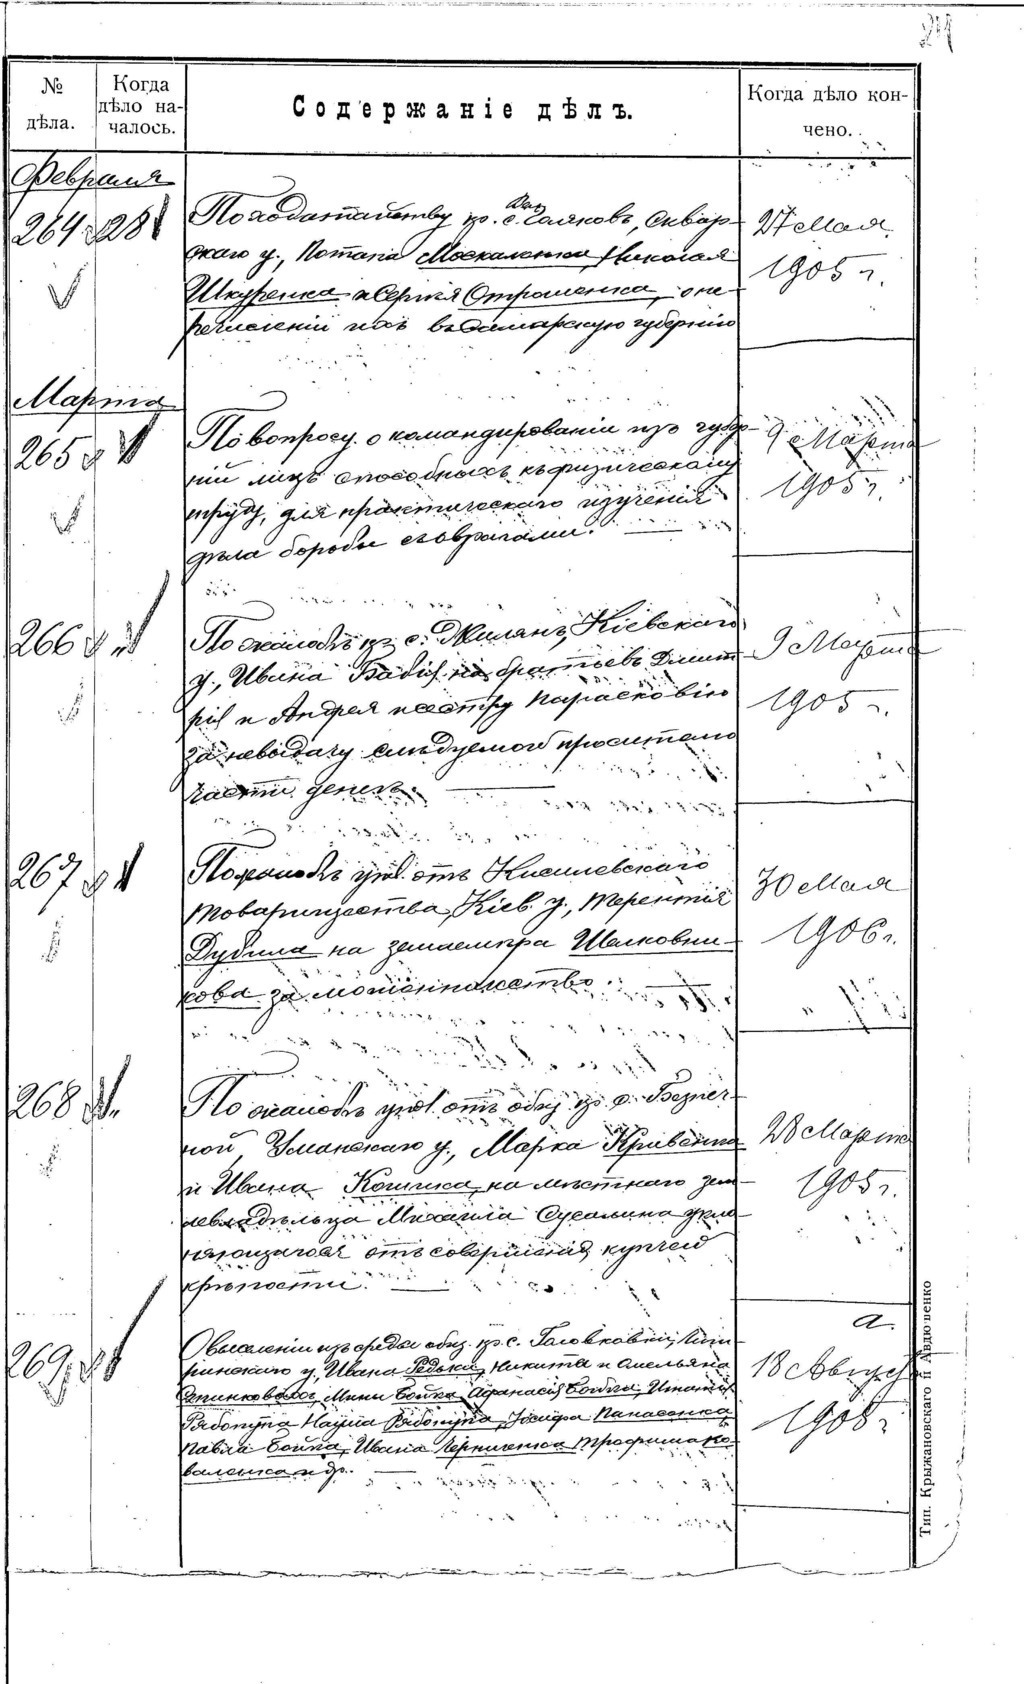 24
№ дѣла.
Когда дѣло на-
чалось.
Содержаніе дѣлъ.
Когда дѣло кон-
чено.
Февраля
264 28
По ходатайству кр. с. Вел. Сквир-
скаго у., Потапа Москаленка, Николая
Шкуренка и Сергѣя Отрошенка, о пе-
речисленіи ихъ въ Самарскую губернію
27 Мая
1905 г.
Марта
265
По вопросу о командированіи изъ губер-
ній лицъ способныхъ къ физическому
труду, для практическаго изученія
дѣла борьбы съ оврагами.
9 Марта
1905 г.
266
По жалобѣ кр. с. Жилянъ, Кіевскаго
у., Ивана на братьевъ Дмит-
рія и Андрея и сестру Парасковію
за невыдачу слѣдуемой просителю
части денегъ.
9 Марта
1905 г.
267
По жалобѣ упол. отъ Кисилевскаго
товарищества, Кіев. у., Терентія
Дубила на землемѣра Шелковни-
кова за мошенничество.
30 Мая
1906 г.
268
По жалобѣ упол. отъ общ. кр. с.
ной, Уманскаго у., Марка Кривенка
и Ивана Кошика, на мѣстнаго зем-
левладѣльца Михаила Сусалина укло-
няющагося отъ совершенія купчей
крѣпости.
28 Марта
1905 г.
269
О выселеніи изъ среды общ. кр. с. Головковки, Чиги-
ринскаго у., Ивана Редьки, Никиты и Омельяна
Мины Бойка, Афанасія Бойка, Игната
Рябокута, Наума Рябокута, Іосифа Панасенка,
Павла Бойка, Ивана Черниенка, Трофима Ко-
валенка и др.
18 Августа
1908 г.
Тип. Крыжановскаго и Авдюшенко